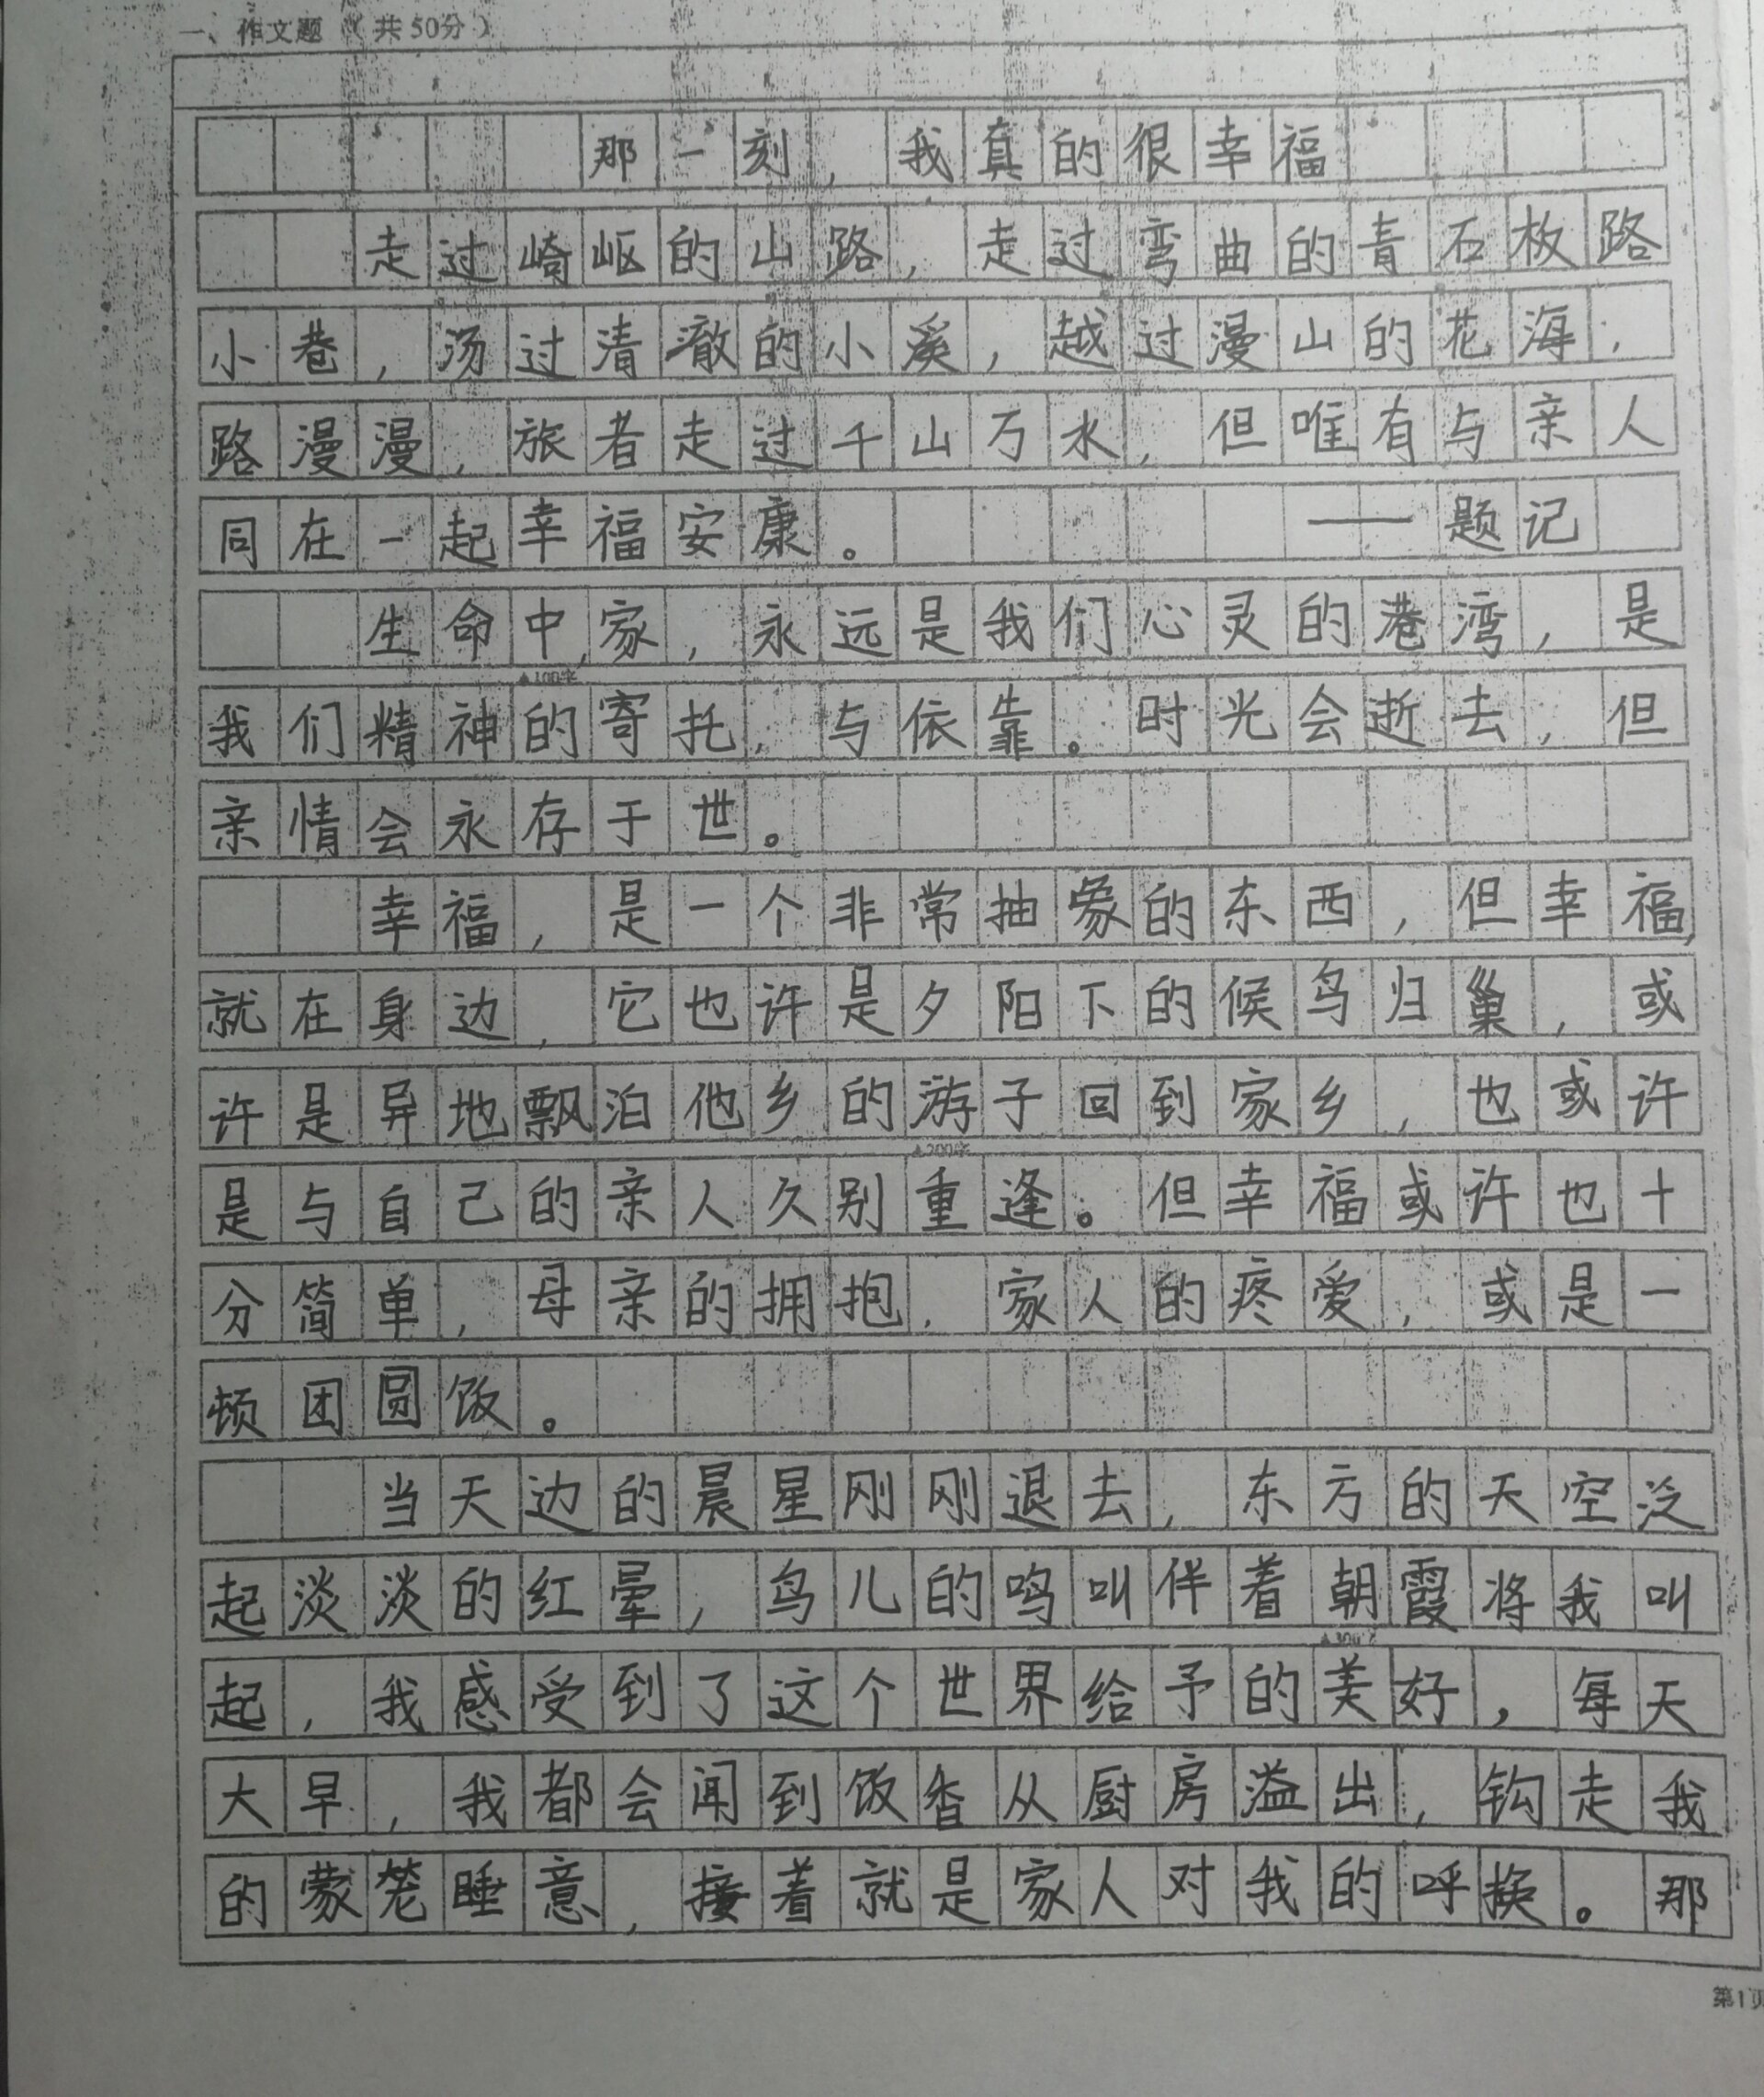 一、作文题（共50分）
那一刻，我真的很幸福
走过崎岖的山路，走过弯曲的青石板路
小巷，汤过清澈的小溪，越过漫山的花海，
路漫漫，旅者走过千山万水，但唯有与亲人
同在一起幸福安康。——题记
生命中,家，永远是我们心灵的港湾，是
▲100字
我们精神的寄托，与依靠。时光会逝去，但
亲情会永存于世。
幸福，是一个非常抽象的东西，但幸福,
就在身边，它也许是夕阳下的候鸟归巢，或
许是异地飘泊他乡的游子回到家乡，也或许
▲200字
是与自己的亲人久别重逢。但幸福或许也十
分简单，母亲的拥抱，家人的疼爱，或是一
顿团圆饭。
当天边的晨星刚刚退去，东方的天空泛
起淡淡的红晕，鸟儿的鸣叫伴着朝霞将我叫
▲300字
起，我感受到了这个世界给予的美好，每天
大早，我都会闻到饭香从厨房溢出，钩走我
的蒙笼睡意，接着就是家人对我的呼换。那
第1页